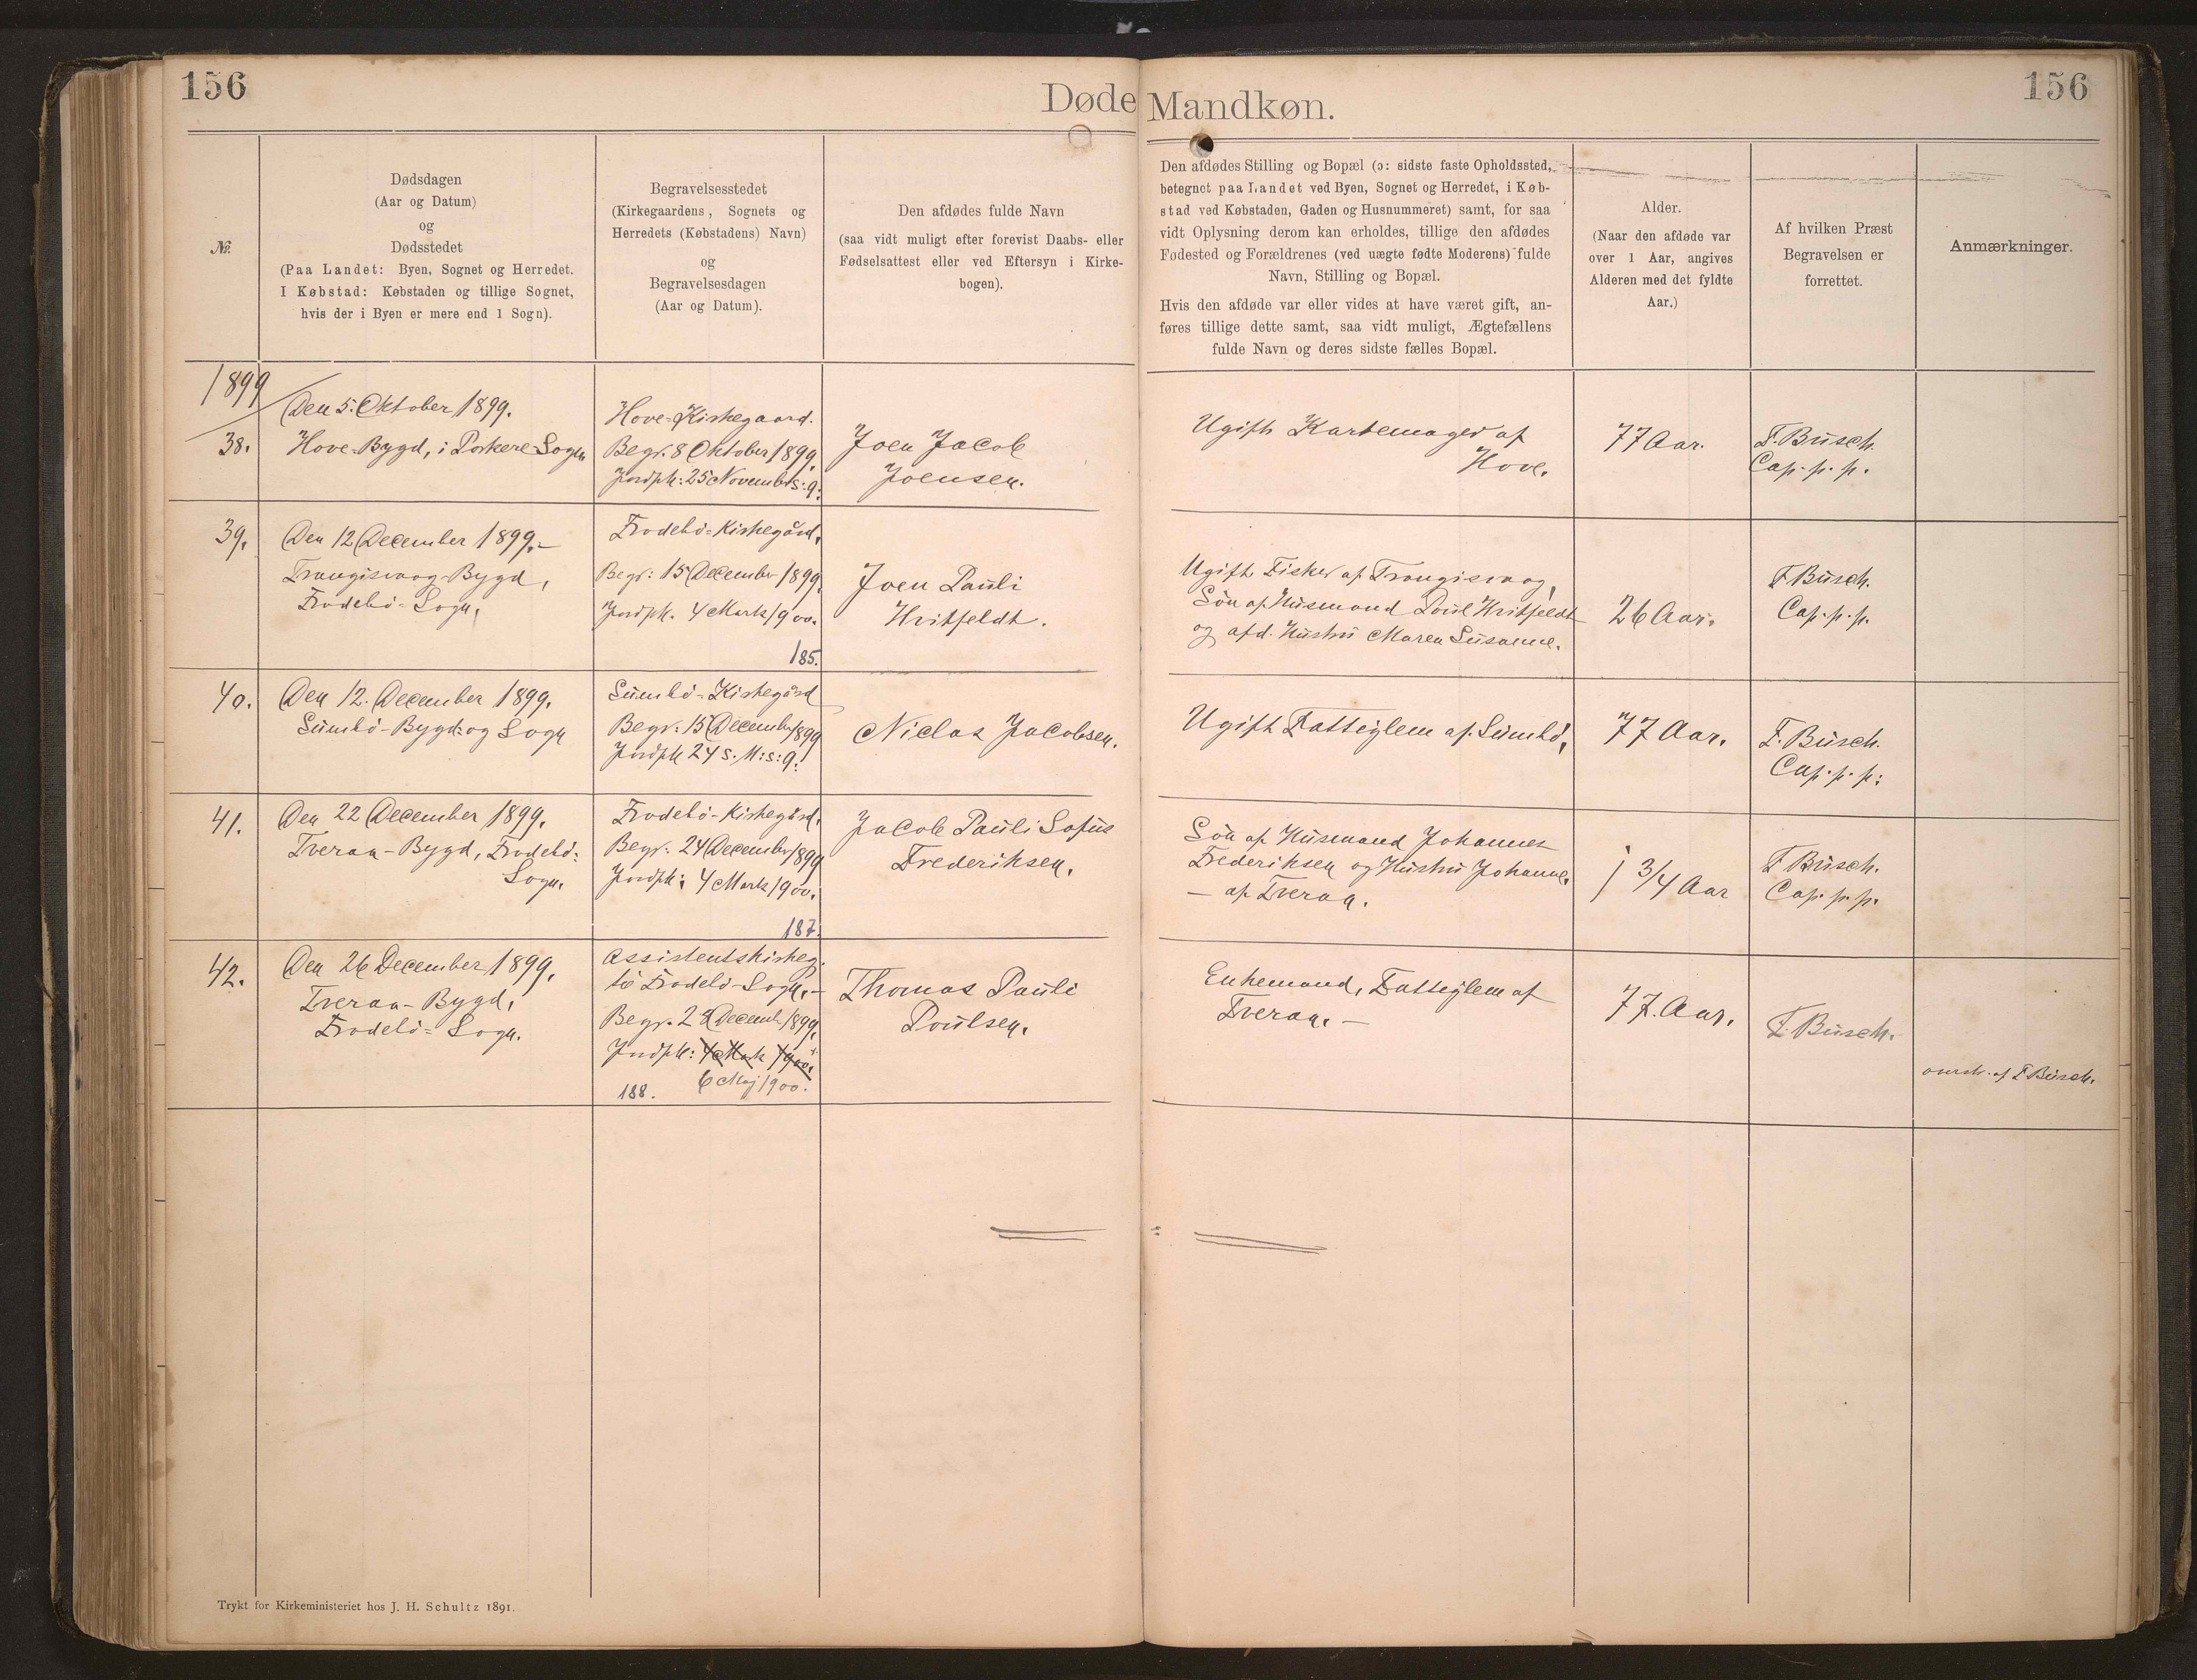 156
Døde Mandkøn.
156
№.
Dødsdagen
(Aar og Datum)
og
Dødsstedet
(Paa Landet: Byen, Sognet og Herredet.
I Købstad: Købstaden og tillige Sognet,
hvis der i Byen er mere end 1 Sogn).
Begravelsesstedet
(Kirkegaardens, Sognets og
Herredets (Købstadens) Navn)
og
Begravelsesdagen
(Aar og Datum).
Den afdødes fulde Navn
(saa vidt muligt efter forevist Daabs- eller
Fødselsattest eller ved Eftersyn i Kirke-
bogen).
Den afdødes Stilling og Bopæl (ɔ: sidste faste Opholdssted,
betegnet paa Landet ved Byen, Sognet og Herredet, i Køb-
stad ved Købstaden, Gaden og Husnummeret) samt, for saa
vidt Oplysning derom kan erholdes, tillige den afdødes
Fødested og Forældrenes (ved uægte fødte Moderens) fulde
Navn, Stilling og Bopæl.
Hvis den afdøde var eller vides at have været gift, an-
føres tillige dette samt, saa vidt muligt, Ægtefællens
fulde Navn og deres sidste fælles Bopæl.
Alder.
(Naar den afdøde var
over 1 Aar, angives
Alderen med det fyldte
Aar.)
Af hvilken Præst
Begravelsen er
forrettet.
Anmærkninger.
1899
38.
Den 5. Oktober 1899.
Hove-Bygd, i Porkere-Sogn
Hove-Kirkegaard.
Begr. 8 Oktober 1899.
Jordpk: 25 November s: 9:
Joen Jacob
Joensen.
Ugift Kartemager af
Hove.
77 Aar.
F. Busch.
Cap. p. p.
39.
Den 12 December 1899.-
Trangisvaag-Bygd,
Frodebö-Sogn.
Frodebö-Kirkegård.
Begr: 15 December 1899.
Jordpk. 4 Marts 1900.
185.
Joen Pauli
Hvitfeldt.
Ugift Fisker af Trangisvaag,
Sön af Husmand Poul Hvitfeldt
og afd. Hustru Maren Susanne.
26 Aar.
F Busch.
Cap. p. p.
40.
Den 12. December 1899.
Sumbö-Bygd: og Sogn
Sumbö-Kirkegård
Begr: 15 December 1899
Jordpk 24 s. M: s: 9:
Niclas Jacobsen.
Ugift Fattiglem af Sumbö,
77 Aar.
F. Busch.
Cap. p. p:
41.
Den 22 December 1899.
Tveraa-Bygd, Frodebö-
Sogn.
Frodebö-Kirkegård.
Begr. 24 December 1899
Jordpk: 4 Marts 1900.
187.
Jacob Pauli Sofus
Frederiksen.
Sön af Husmand Johannes
Frederiksen og Hustru Johanne
- af Tveraa.
1 3/4 Aar
F Busch.
Cap. p. p.
42.
Den 26 December 1899.
Tveraa-Bygd,
Frodebö-Sogn.
Assistentskirkeg.
til Frodebö-Sogn.-
Begr. 29 Decemb. 1899.
Jordpk: 4 Marts 1900.
6 Maj 1900.
188.
Thomas Pauli
Poulsen.
Enkemand, Fattiglem af
Tveraa.-
77. Aar.
F. Busch.
overstr. af F Busch.
Trykt for Kirkeministeriet hos J. H. Schultz 1891.